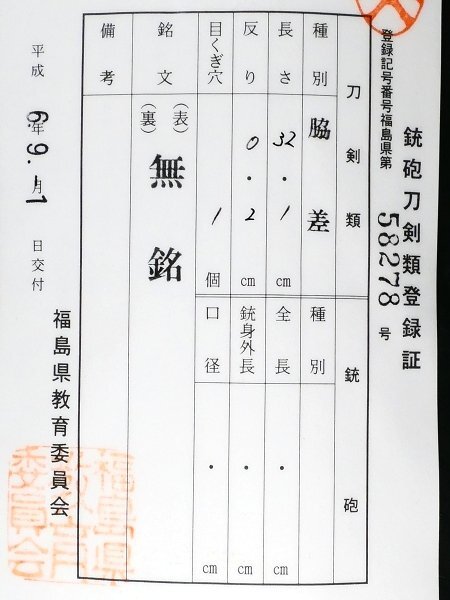 銃砲刀剣類登録証
登録記号番号福島県第 58278 号
刀剣類
銃砲
種別 脇差
種別
長さ 32.1 cm
全長 . cm
反り 0.2 cm
銃身外長 . cm
目くぎ穴 1 個
口径 . cm
銘文 (表) 無銘
(裏)
備考
平成 6年 9.-1 月 日交付
福島県教育委員会
福島県教育委員会